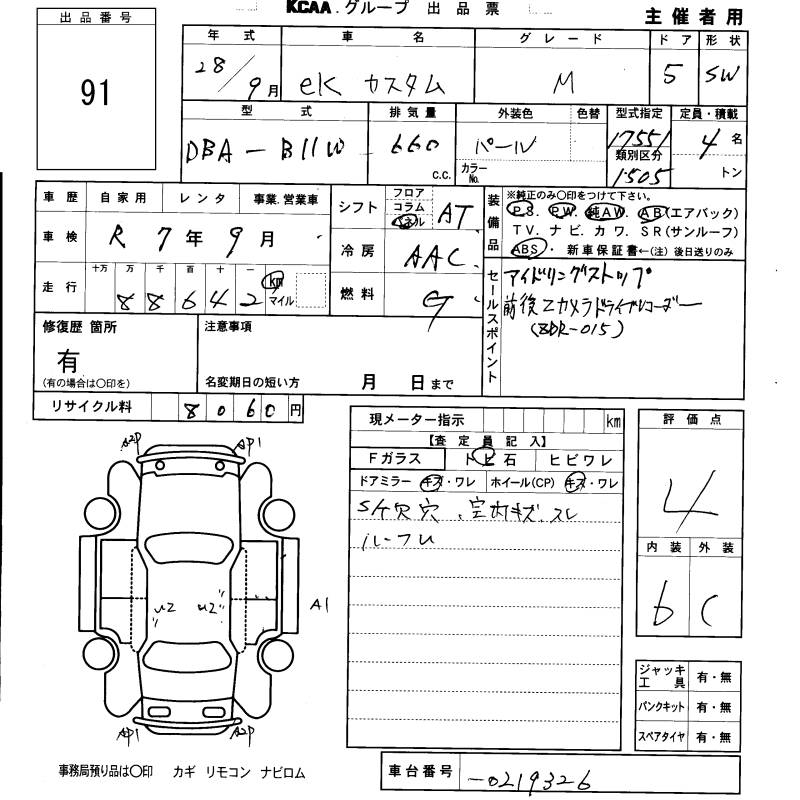 KCAA.グループ 出品票
主催者用
出品番号
91
年式 車名 グレード ドア 形状
28/9月 eK カスタム M 5 SW
型式 排気量 外装色 色替 型式指定 定員・積載
DBA-B11W 660 C.C. パール カラーNo. 17551 4名
類別区分
1505 トン
車歴 自家用 レンタ 事業.営業車
車検 R 7年 9月
走行 十万 万 千 百 十 一 km マイル
88642
シフト フロア コラム パネル AT
冷房 AAC
燃料 G
装備品 ※純正のみ○印をつけて下さい。
P.S. P.W. 純AW. AB(エアバック)
TV. ナビ. カワ. SR(サンルーフ)
ABS. 新車保証書←(注)後日送りのみ
セールスポイント
アイドリングストップ
前後2カメラドライブレコーダー
(ZDR-015)
修復歴 箇所 注意事項
有
(有の場合は○印を) 名変期日の短い方 月 日まで
リサイクル料 8060円
現メーター指示 km
【査定員記入】
Fガラス トビ石 ヒビワレ
ドアミラー キズ・ワレ ホイール(CP) キズ・ワレ
S欠穴、室内キズ.スレ
ルーフU
評価点
4
内装 外装
b C
ジャッキ工具 有・無
パンクキット 有・無
スペアタイヤ 有・無
A2P AP1
U2 U2 A1
AP1 A2P
事務局預り品は○印 カギ リモコン ナビロム
車台番号 -0219326